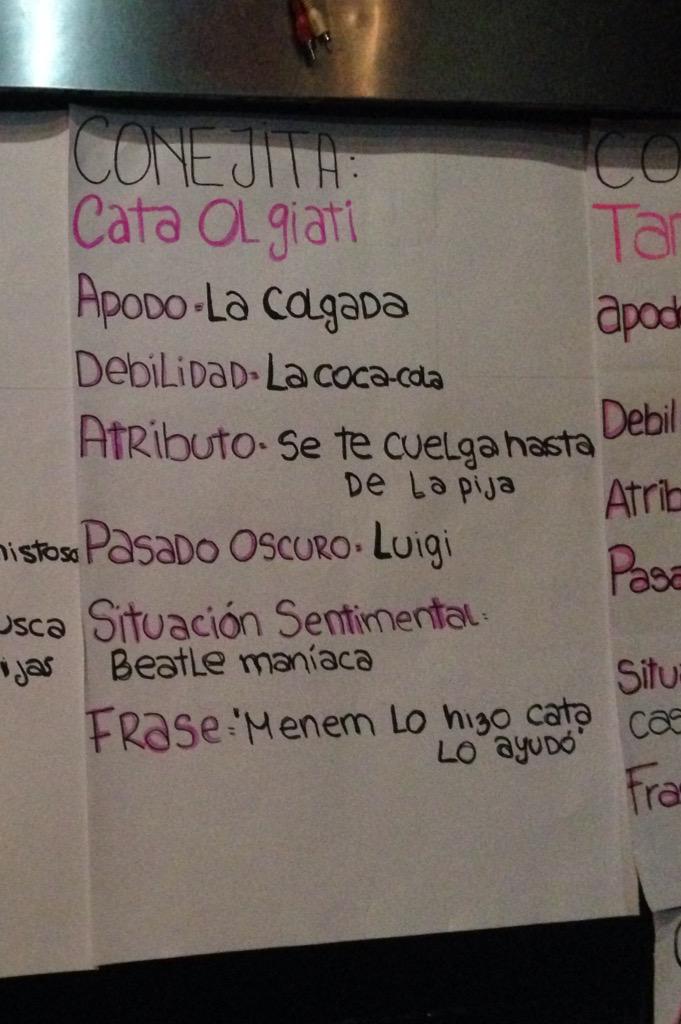 CONEJITA:
Cata OLgiati
APODO-LA COLgADA
DEBILIDAD-LA COCA-COLA
ATRIBUTO- Se te CUELga hasta
DE La pija
PASADO OSCURO- Luigi
Situación Sentimental:
Beatle maníaca
FRASE: "Menem LO hizo Cata
LO ayudó"
istoso
usca
ijas
CO
Tar
apod
Debil
Atrib
Pasa
Situa
cas
Fra